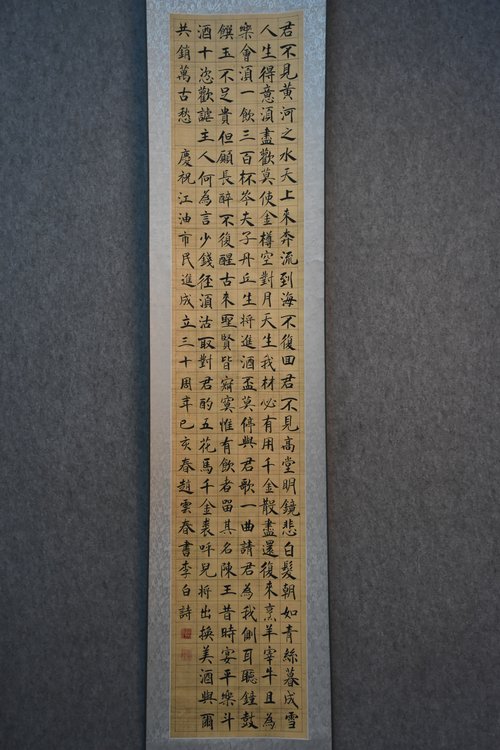 君不見黃河之水天上来奔流到海不復回君不見高堂明鏡悲白髮朝如青絲暮成雪
人生得意須盡歡莫使金樽空對月天生我材必有用千金散盡還復来烹羊宰牛且為
樂會須一飲三百杯岑夫子丹丘生将進酒盃莫停與君歌一曲請君為我側耳聽鐘鼓
饌玉不足貴但願長醉不復醒古来聖賢皆寂寞惟有飲者留其名陳王昔時宴平樂斗
酒十恣歡謔主人何為言少錢徑須沽取對君酌五花馬千金裘呼兒将出換美酒與爾
共銷萬古愁 慶祝江油市民進成立三十周年己亥春趙雲春書李白詩